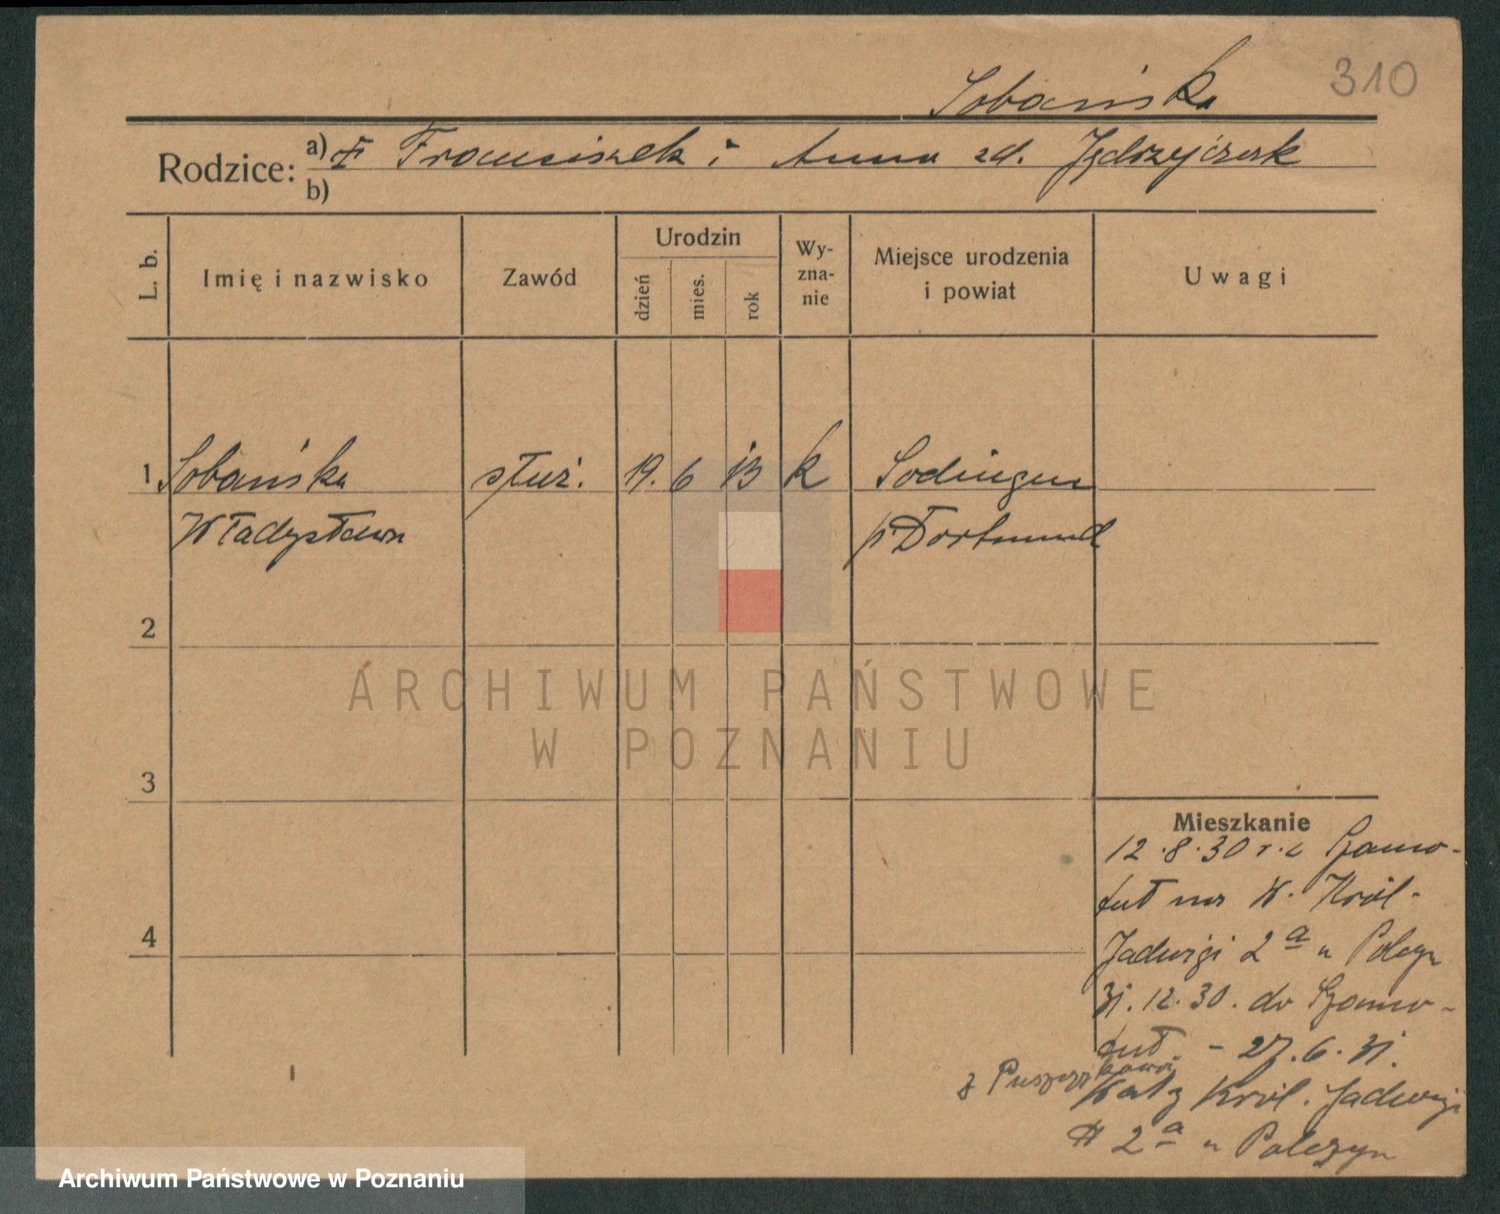 310
Sobańska
Rodzice: a) Franciszek i Anna zd. Jędrzejczak
b)
L. b.
Imię i nazwisko
Zawód
Urodzin
dzień
mies.
rok
Wy-
zna-
nie
Miejsce urodzenia
i powiat
Uwagi
1 Sobańska służ. 19. 6 13 k Sodingen
Władysława p. Dortmund
2
3
4
ARCHIWUM PAŃSTWOWE
W POZNANIU
Mieszkanie
12.8.30 r. z Szamo-
tuł na W. Król.
Jadwigi 2a u Polczyn
31.12.30. do Szamo-
tuł. - 27.6.31.
z Puszczykowa
Król. Jadwigi
2a u Polczyn
Archiwum Państwowe w Poznaniu